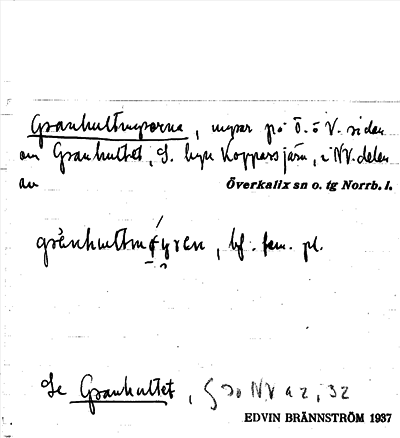 Granhultmyrorna, myrar på Ö. o V. sidan
om Granhultet, S. byn Koppersjärn, i NV. delen
av Överkalix sn o. tg Norrb. l.
grànhultmýran, bf. fem. pl.
Se Granhultet, 30 NV a 2, 32
EDVIN BRÄNNSTRÖM 1937